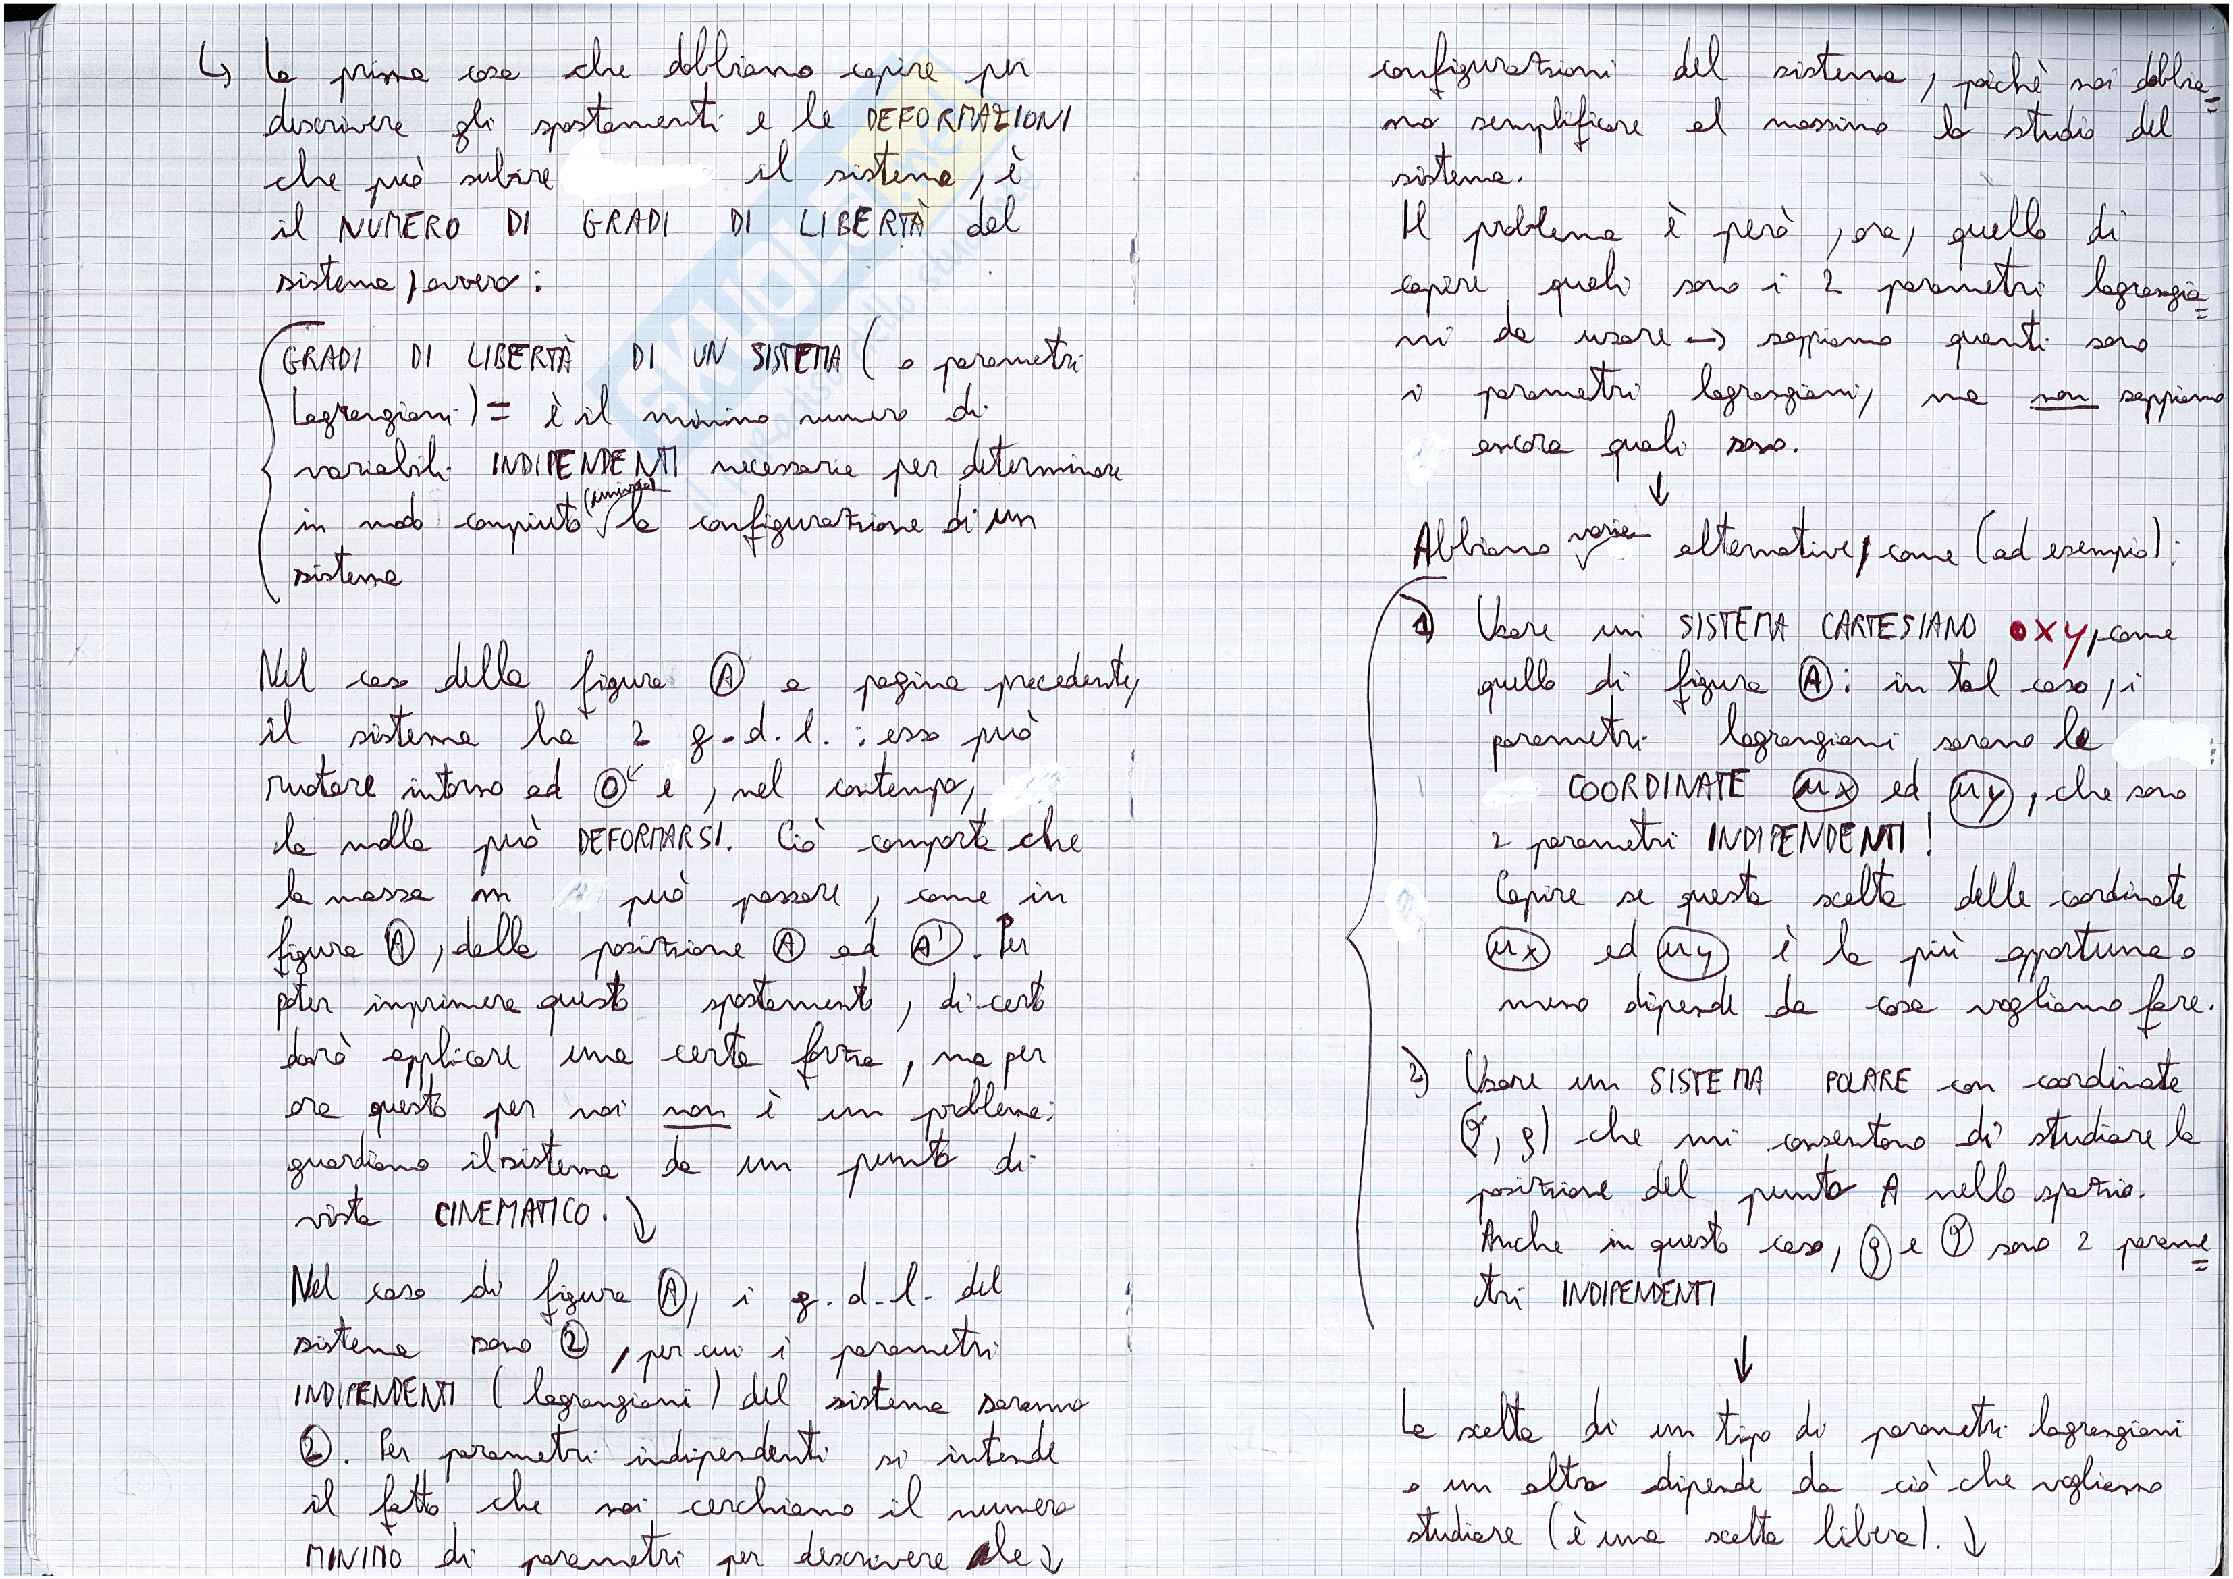 ↳ La prima cosa che dobbiamo capire per
descrivere gli spostamenti e le DEFORMAZIONI
che può subire il sistema, è
il NUMERO DI GRADI DI LIBERTÀ del
sistema, ovvero:
GRADI DI LIBERTÀ DI UN SISTEMA (o parametri
Lagrangiani) = è il minimo numero di
variabili INDIPENDENTI necessarie per determinare
(univoco)
in modo compiuto la configurazione di un
sistema
Nel caso della figura Ⓐ a pagina precedente,
il sistema ha 2 g.d.l.: esso può
ruotare intorno ad Ⓞ e, nel contempo,
la molla può DEFORMARSI. Ciò comporta che
la massa m può passare, come in
figura Ⓐ, dalla posizione Ⓐ ad (A'). Per
poter imprimere questo spostamento, di certo
dovrò applicare una certa forza, ma per
ora questo per noi non è un problema:
guardiamo il sistema da un punto di
vista CINEMATICO. ↓
Nel caso di figura Ⓐ, i g.d.l. del
sistema sono ②, per cui i parametri
INDIPENDENTI (lagrangiani) del sistema saranno
②. Per parametri indipendenti si intende
il fatto che noi cerchiamo il numero
MINIMO di parametri per descrivere le ↓
configurazioni del sistema, poichè noi dobbia=
mo semplificare al massimo lo studio del
sistema.
Il problema è però, ora, quello di
capire quali sono i 2 parametri lagrangia=
ni da usare → sappiamo quanti sono
i parametri lagrangiani, ma non sappiamo
ancora quali sono.
↓
Abbiamo varie alternative, come (ad esempio):
1) Usare un SISTEMA CARTESIANO OXY, come
quello di figura Ⓐ: in tal caso, i
parametri lagrangiani sarano le
COORDINATE (ux) ed (uy), che sono
2 parametri INDIPENDENTI!
Capire se questa scelta delle coordinate
(ux) ed (uy) è la più opportuna o
meno dipende da cosa vogliamo fare.
2) Usare un SISTEMA POLARE con coordinate
(φ, ρ) che mi consentono di studiare la
posizione del punto A nello spazio.
Anche in questo caso, (ρ) e (φ) sono 2 parame=
tri INDIPENDENTI
↓
La scelta di un tipo di parametri lagrangiani
o un altro dipende da ciò che vogliamo
studiare (è una scelta libera). ↓